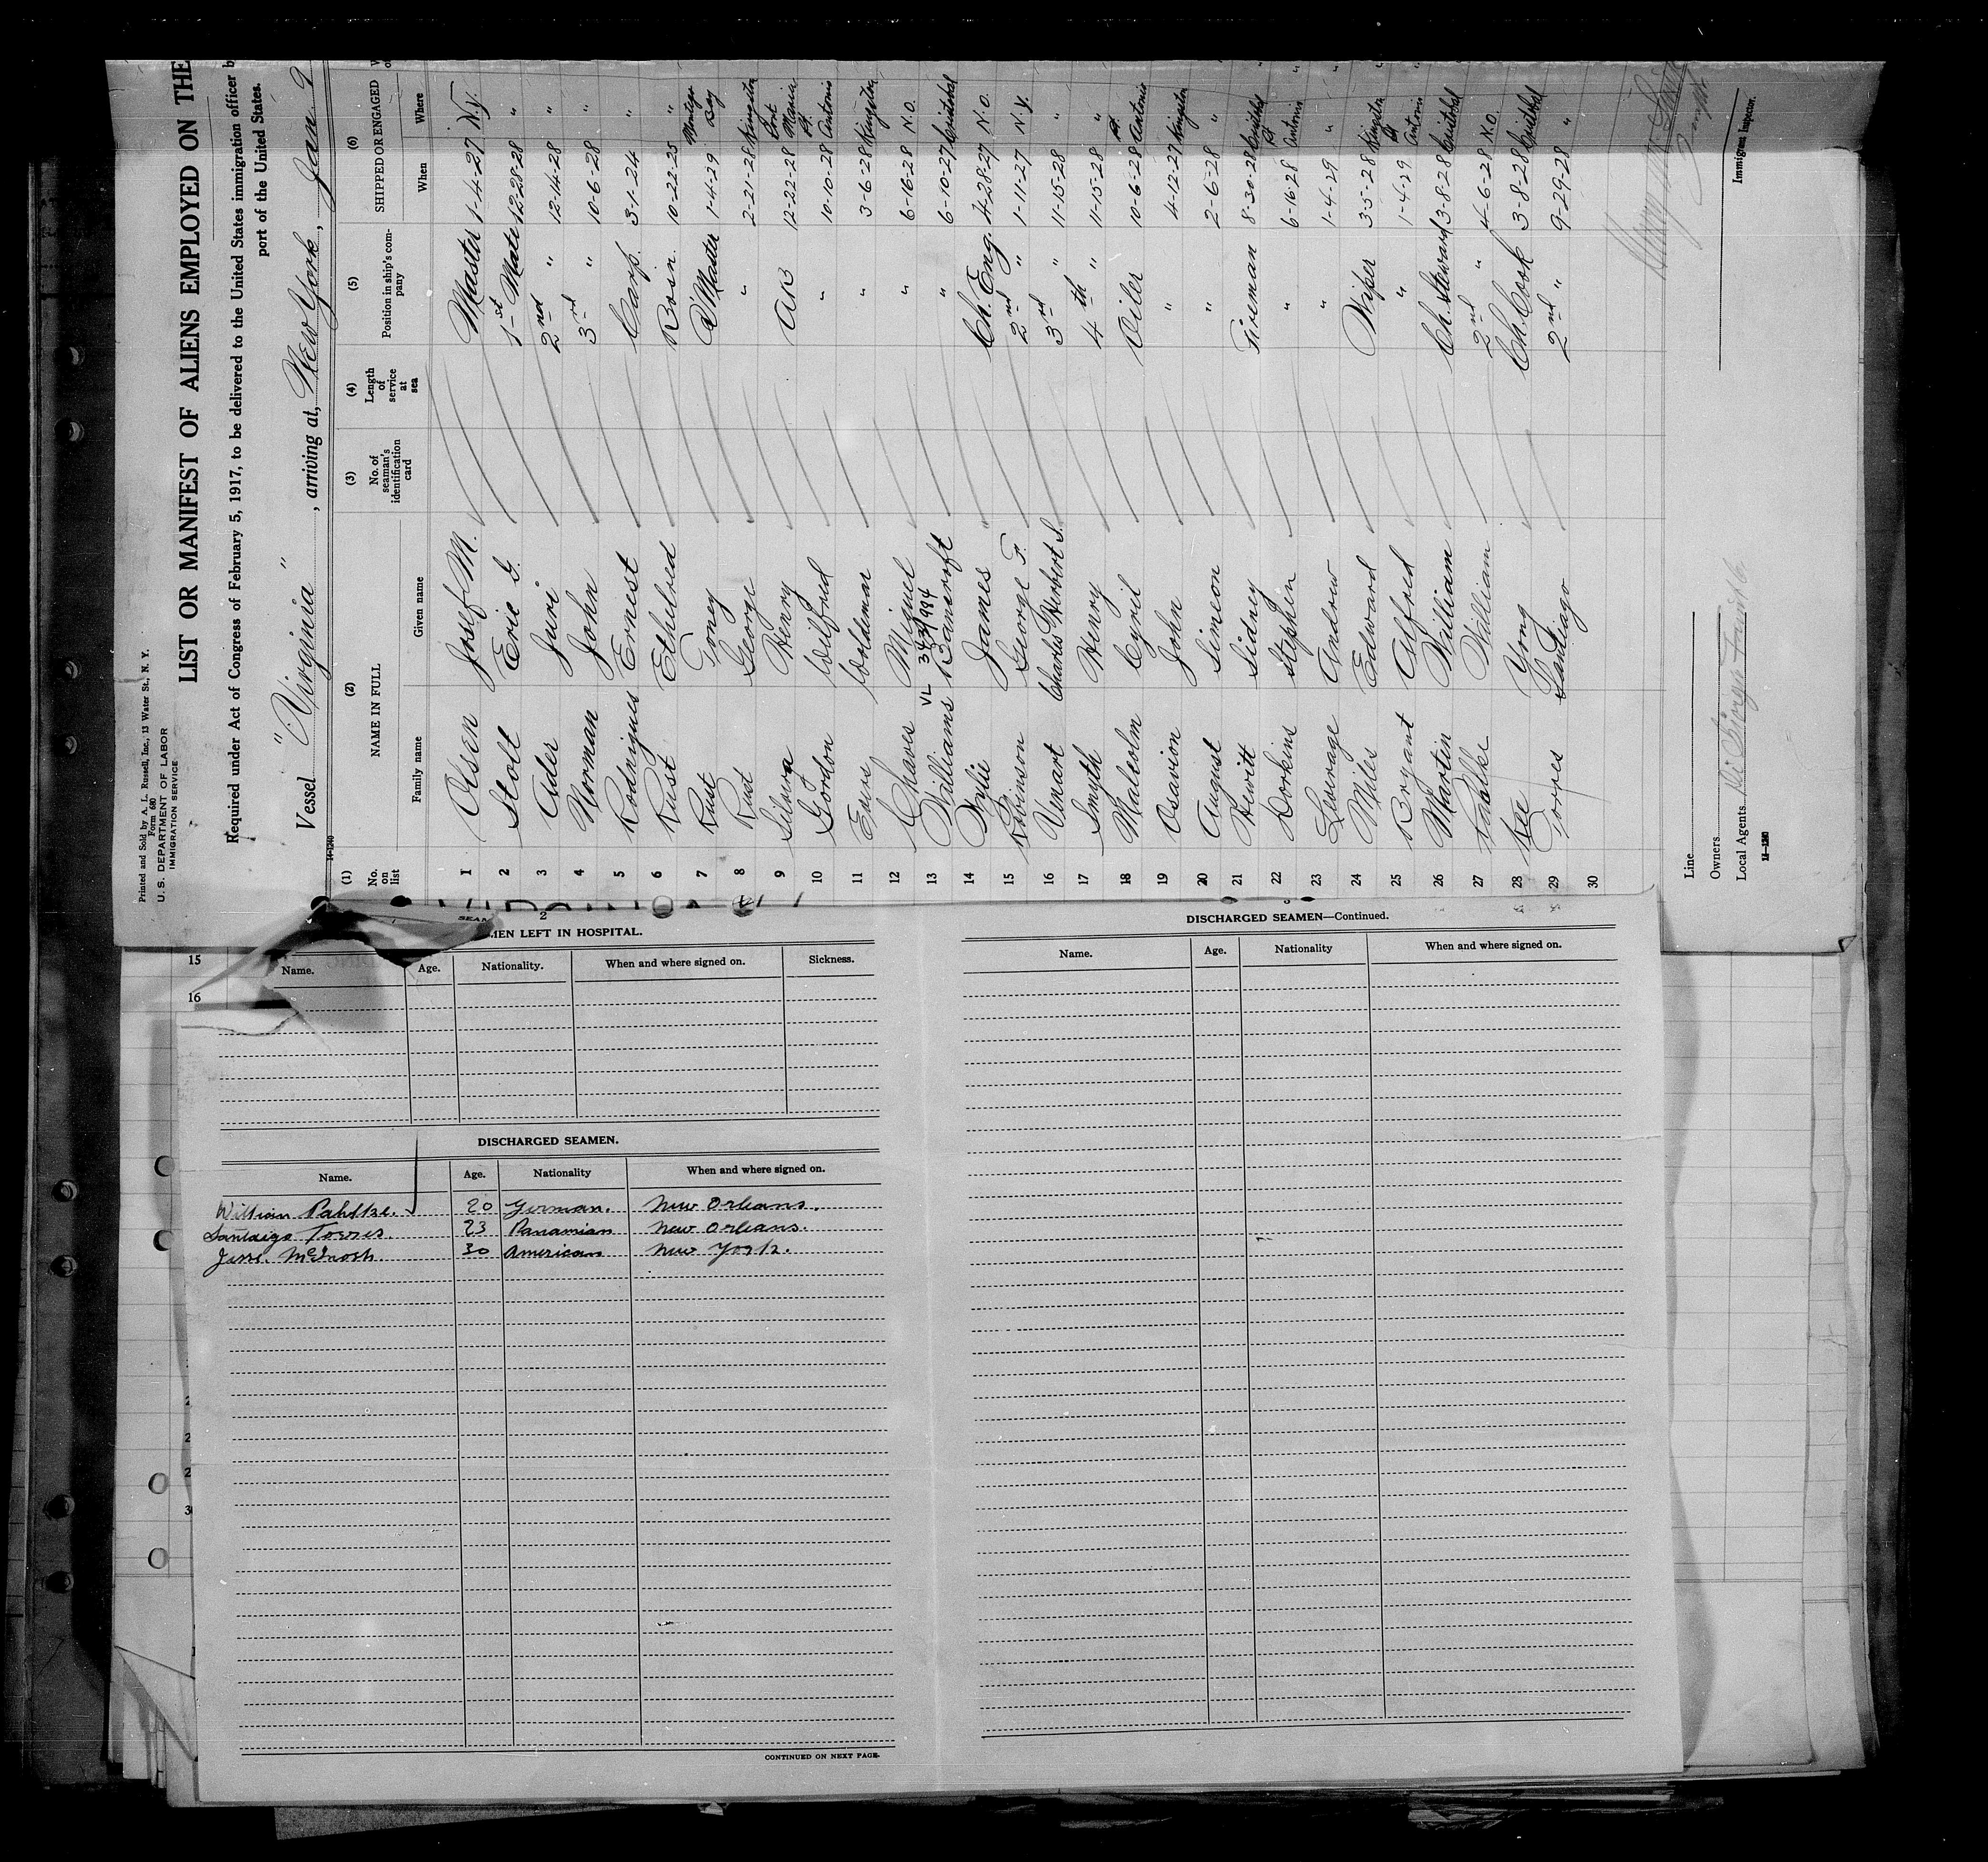 Printed and Sold by A. L. Russell, Inc., 13 Water St., N. Y.
Form 680
U. S. DEPARTMENT OF LABOR
IMMIGRATION SERVICE
LIST OR MANIFEST OF ALIENS EMPLOYED ON THE
Required under Act of Congress of February 5, 1917, to be delivered to the United States immigration officer b
port of the United States.
Vessel "Virginia", arriving at, New York, Jan. 9
14-1240
(1) (2) (3) (4) (5) (6)
No. on list NAME IN FULL No. of seaman's identification card Length of service at sea Position in ship's company SHIPPED OR ENGAGED
Family name Given name When Where
1 Olsen Josef M. Master 1-4-27 N.Y.
2 Stolt Eric G. 1st Mate 12-28-28 "
3 Ader Juri 2nd " 12-14-28 "
4 Norman John 3rd " 10-6-28 "
5 Rodrigues Ernest Carp. 3-1-24 "
6 Rust Ethelred Bosin. 10-22-25 "
7 Rust Toney Q'Master 1-4-29 Montego Bay
8 Rust George " 2-21-28 Kingston
9 Silvera Henry AB 12-22-28 Port Maria
10 Gordon Wilfred " 10-10-28 Pt. Antonio
11 Woldeman " 3-6-28 Kingston
12 Chaves Miguel " 6-16-28 N.O.
VL 343/984
13 Williams Bancroft " 6-10-27 Cristobal
14 Wylie James Ch. Eng. 4-28-27 N.O.
15 Robinson George F. 2nd " 1-11-27 N.Y.
16 Venart Charles Herbert S. 3rd " 11-15-28 "
17 Smyth Henry 4th " 11-15-28 "
18 Malcolm Cyril Oiler 10-6-28 Pt. Antonio
19 Osavion John " 4-12-27 Kingston
20 August Simeon " 2-6-28 "
21 Hewitt Sidney Fireman 8-30-28 Cristobal
22 Dorkins Stephen " 6-16-28 Pt. Antonio
23 Leverage Andrew " 1-4-29 "
24 Miles Edward Wiper 3-5-28 Kingston
25 Bryant Alfred " 1-4-29 Pt. Antonio
26 Martin William Ch. Steward 3-8-28 Cristobal
27 William 2nd " 4-6-28 N.O.
28 Kee Yong Ch. Cook 3-8-28 Cristobal
29 Torres Santiago 2nd " 9-29-28 "
30
Line
Owners
Local Agents Di Giorgio
14-1240
Immigrant Inspector.
15
16
2
MEN LEFT IN HOSPITAL.
Name. Age. Nationality. When and where signed on. Sickness.
DISCHARGED SEAMEN.
Name. Age. Nationality When and where signed on.
William Pahlke. 20 German. New Orleans.
Santaigo Torres. 23 Panamian New Orleans.
Jesse. McInosh. 30 American New York.
CONTINUED ON NEXT PAGE.
DISCHARGED SEAMEN—Continued.
Name. Age. Nationality When and where signed on.